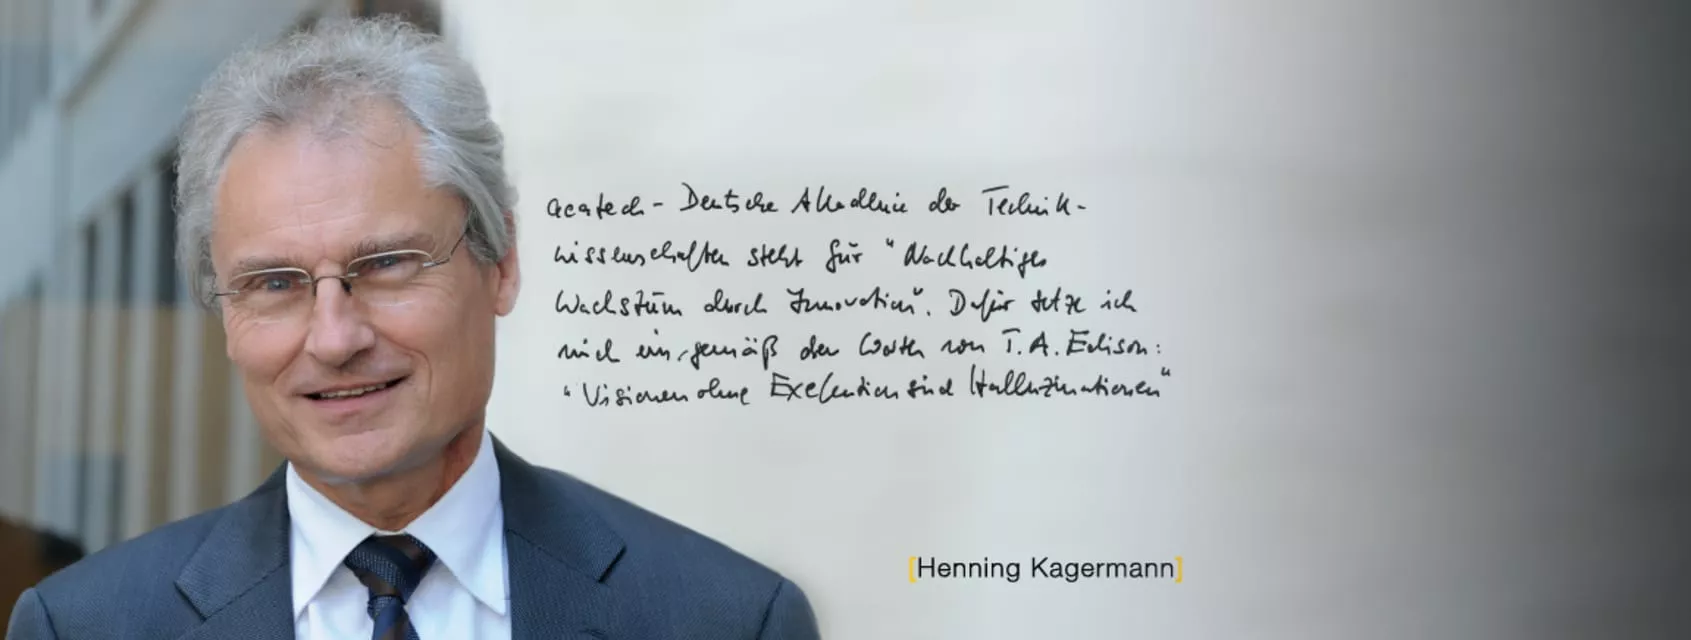 acatech - Deutsche Akademie der Technik-
wissenschaften steht für "Nachhaltiges
Wachstum durch Innovation". Dafür setze ich
mich ein, gemäß den Worten von T. A. Edison:
"Visionen ohne Exekution sind Halluzinationen"
[Henning Kagermann]